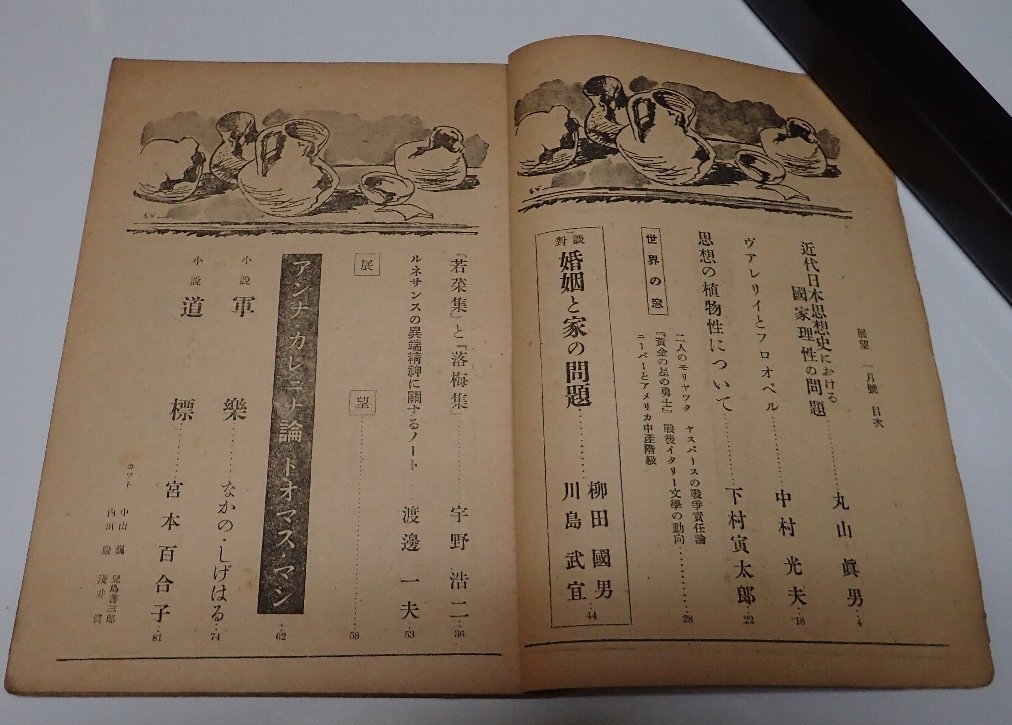 展望 一月號 目次
近代日本思想史における
國家理性の問題………丸山眞男…4
ヴァレリイとフロオベル………中村光夫…16
思想の植物性について………下村寅太郎…22
世界の窓
二人のモリヤック ヤスパースの戰爭責任論
『黃金の星の勇士』 戰後イタリー文學の動向………28
ニーバーとアメリカ中產階級
對談 婚姻と家の問題………柳田國男
川島武宜…44
『若菜集』と『落梅集』………宇野浩二…36
ルネサンスの異端精神に關するノート………渡邊一夫…53
展望………58
アンナ・カレニナ論 トオマス・マン…62
小説 軍樂………なかの・しげはる…74
小説 道標………宮本百合子…81
カット
中山巍 兒島善三郎
內田巖 淺井眞